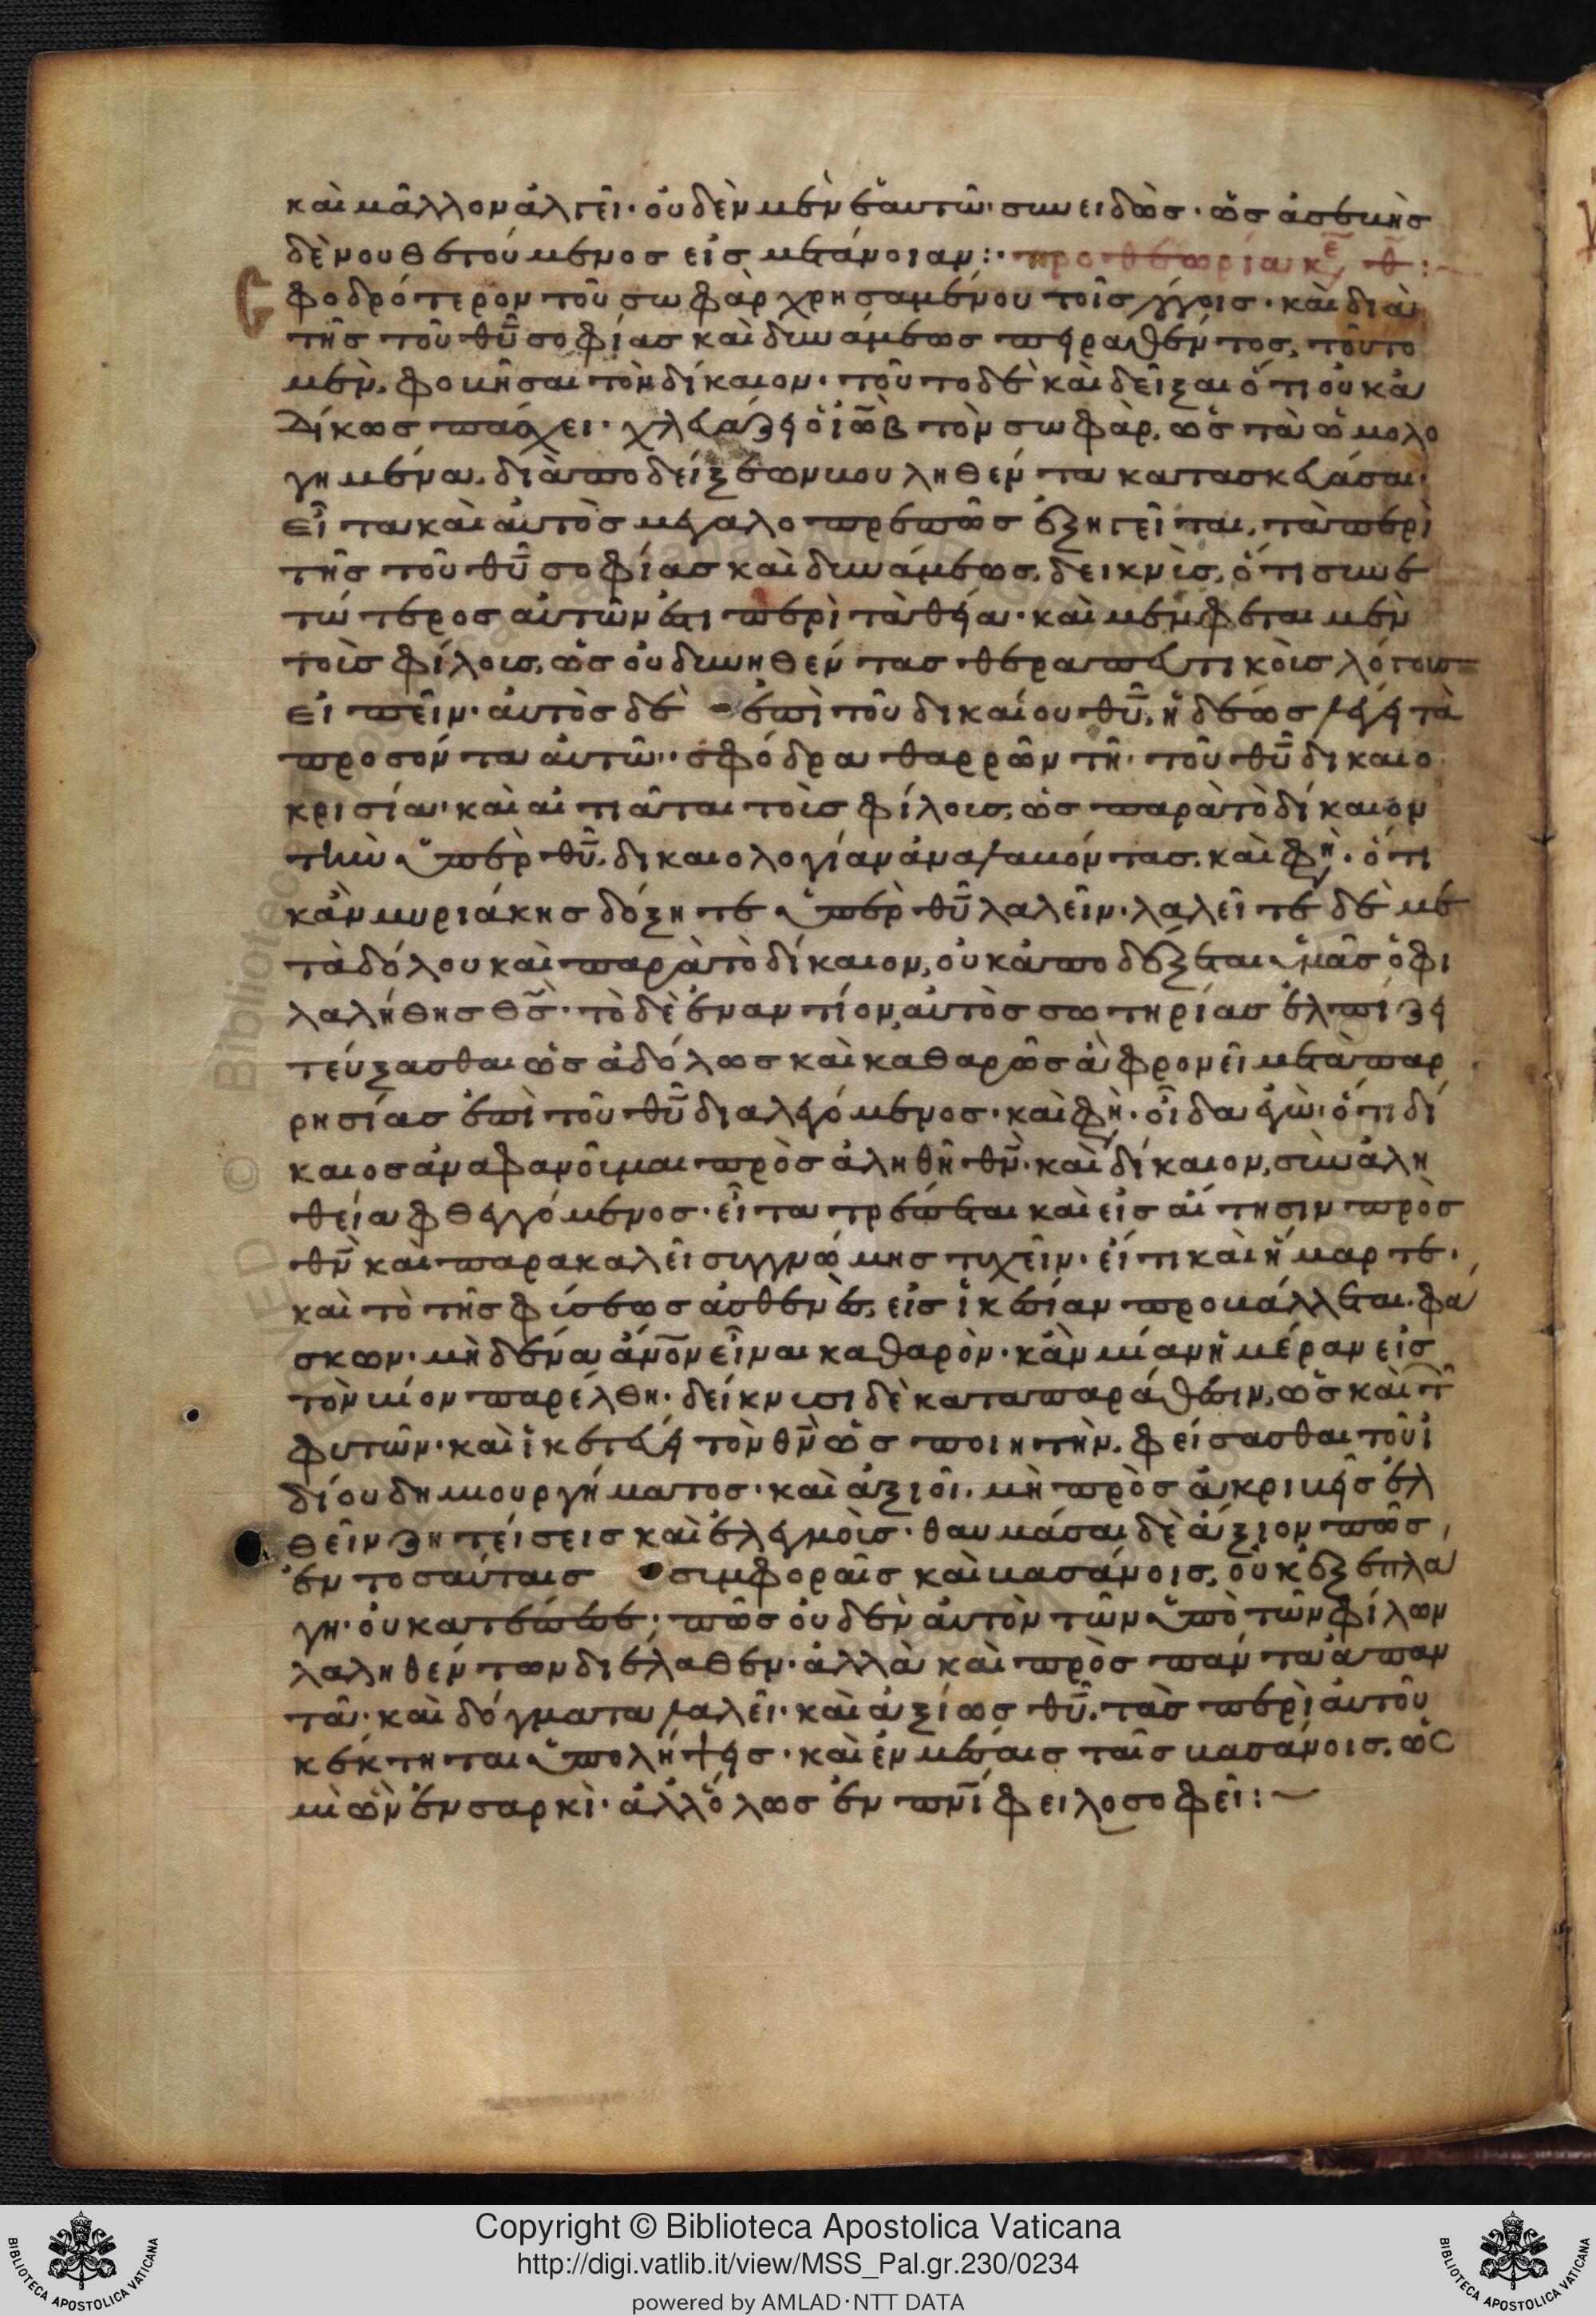 καὶ μᾶλλον ἀλγεῖ· οὐδὲν μὲν ἑαυτῶ· συνειδὼς· ὡς ἀσεβὴς
δὲ νουθετούμενος εἰς μετάνοιαν:· προθεωρία κε θ:
Cφοδρότερον τοῦ σωφὰρ χρησαμένου τοῖς λόγοις· καὶ διὰ
τῆς τοῦ θυ σοφίας καὶ δυνάμεως πειραθέντος, τοῦτο
μὲν, φοβῆσαι τὸν δίκαιον· τοῦτο δὲ καὶ δεῖξαι ὅτι οὐκ ἀ
δίκως πάσχει· χλευάζει ὁ ἰὼβ τὸν σωφὰρ, ὡς τὰ ὡμολο
γημένα, δι ἀποδείξεων βουληθέντα κατασκευάσαι·
εἶτα καὶ αὐτὸς μεγαλοπρεπῶς ἐξηγεῖται, τὰ περὶ
τῆς τοῦ θυ σοφίας καὶ δυνάμεως, δεικνὺς, ὅτι συνε
τώτερος αὐτῶν ἐστι περὶ τὰ θεῖα· καὶ μέμφεται μὲν
τοῖς φίλοις, ὡς οὐ δυνηθέντας θεραπευτικοῖς λόγοις
εἰπεῖν· αὐτὸς δὲ ἐπὶ τοῦ δικαίου θυ, ἡδέως λέγει τὰ
προσόντα αὐτῶ· σφόδρα θαρρῶν τῆ τοῦ θυ δικαιο
κρισία· καὶ αἰτιᾶται τοῖς φίλοις, ὡς παρὰ τὸ δίκαιον
τὴν ὑπὲρ θυ δικαιολογίαν ἀναλαβόντας, καὶ φη· ὅτι
κἂν μυριάκης δόξητε ὑπὲρ θυ λαλεῖν· λαλεῖτε δὲ με
τὰ δόλου καὶ παρὰ τὸ δίκαιον, οὐκ ἀποδέξεται ὑμᾶς ὁ φι
λαλήθης θς· τὸ δὲ ἐναντίον, αὐτὸς σωτηρίας ἐλπίζει
τεύξασθαι ὡς ἀδόλως καὶ καθαρῶς ἃ φρονεῖ μετὰ παρ
ρησίας ἐπὶ τοῦ θυ διαλεγόμενος· καὶ φη· οἶδα ἐγὼ· ὅτι δί
καιος ἀναφανοῦμαι πρὸς ἀληθῆ θν· καὶ δίκαιον, σὺν ἀλη
θεία φθεγγόμενος· εἶτα τρέπεται καὶ εἰς αἴτησιν πρὸς
θν καὶ παρακαλεῖ συγγνώμης τυχεῖν· εἴ τι καὶ ἥμαρτε·
καὶ τὸ τῆς φύσεως ἀσθενὲς, εἰς ἱκεσίαν προβάλλεται· φά
σκων· μὴδένα ἀνον εἶναι καθαρὸν· κἂν μίαν ἡμέραν εἰς
τὸν βίον παρέλθη· δείκνυσι δὲ κατὰ παράθεσιν, ὡς καὶ τ
φυτῶν· καὶ ἱκετεύει τὸν θν ὡς ποιητὴν, φείσασθαι τοῦ ἰ
δίου δημιουργήματος· καὶ ἀξιοῖ, μὴ πρὸς ἀκριβεῖς ἐλ
θεῖν ζητείσεις καὶ ἐλεγμοὶς· θαυμάσαι δὲ ἄξιον πῶς,
ἐν τοσαύταις συμφοραῖς καὶ βασάνοις, οὐκ ἐξεπλά
γη· οὐ κατέπεσε· πῶς οὐδὲν αὐτὸν τῶν ὑπὸ τῶν φίλων
λαληθέντων διέλαθεν· ἀλλὰ καὶ πρὸς πάντα ἀπαν
τᾶ· καὶ δόγματα λαλεῖ· καὶ ἀξίως θυ, τὰς περὶ αὐτοῦ
κέκτηται ὑπολήψεις· καὶ ἐν μέσαις ταῖς βασάνοις, ὡς
μὴ ὢν ἐν σαρκὶ· ἀλλ' ὅλως ἐν πνι φειλοσοφεῖ:
Copyright © Biblioteca Apostolica Vaticana
http://digi.vatlib.it/view/MSS_Pal.gr.230/0234
powered by AMLAD·NTT DATA